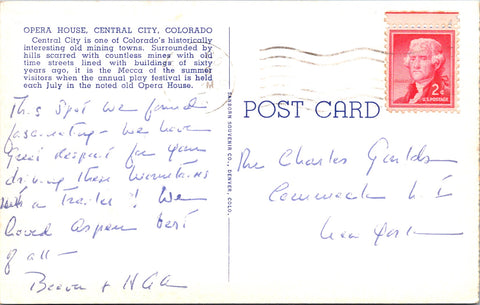 OPERA HOUSE, CENTRAL CITY, COLORADO
Central City is one of Colorado's historically
interesting old mining towns. Surrounded by
hills scarred with countless mines with old
time streets lined with buildings of sixty
years ago, it is the Mecca of the summer
visitors when the annual play festival is held
each July in the noted old Opera House.
This spot we found
fascinating - we have
Great respect for your
driving these mountains
with a Trailer! We
loved Aspen best
of all -
SANBORN SOUVENIR CO., DENVER, COLO.
POST CARD
2¢
U.S. POSTAGE
The Charles
Commack L I
New York